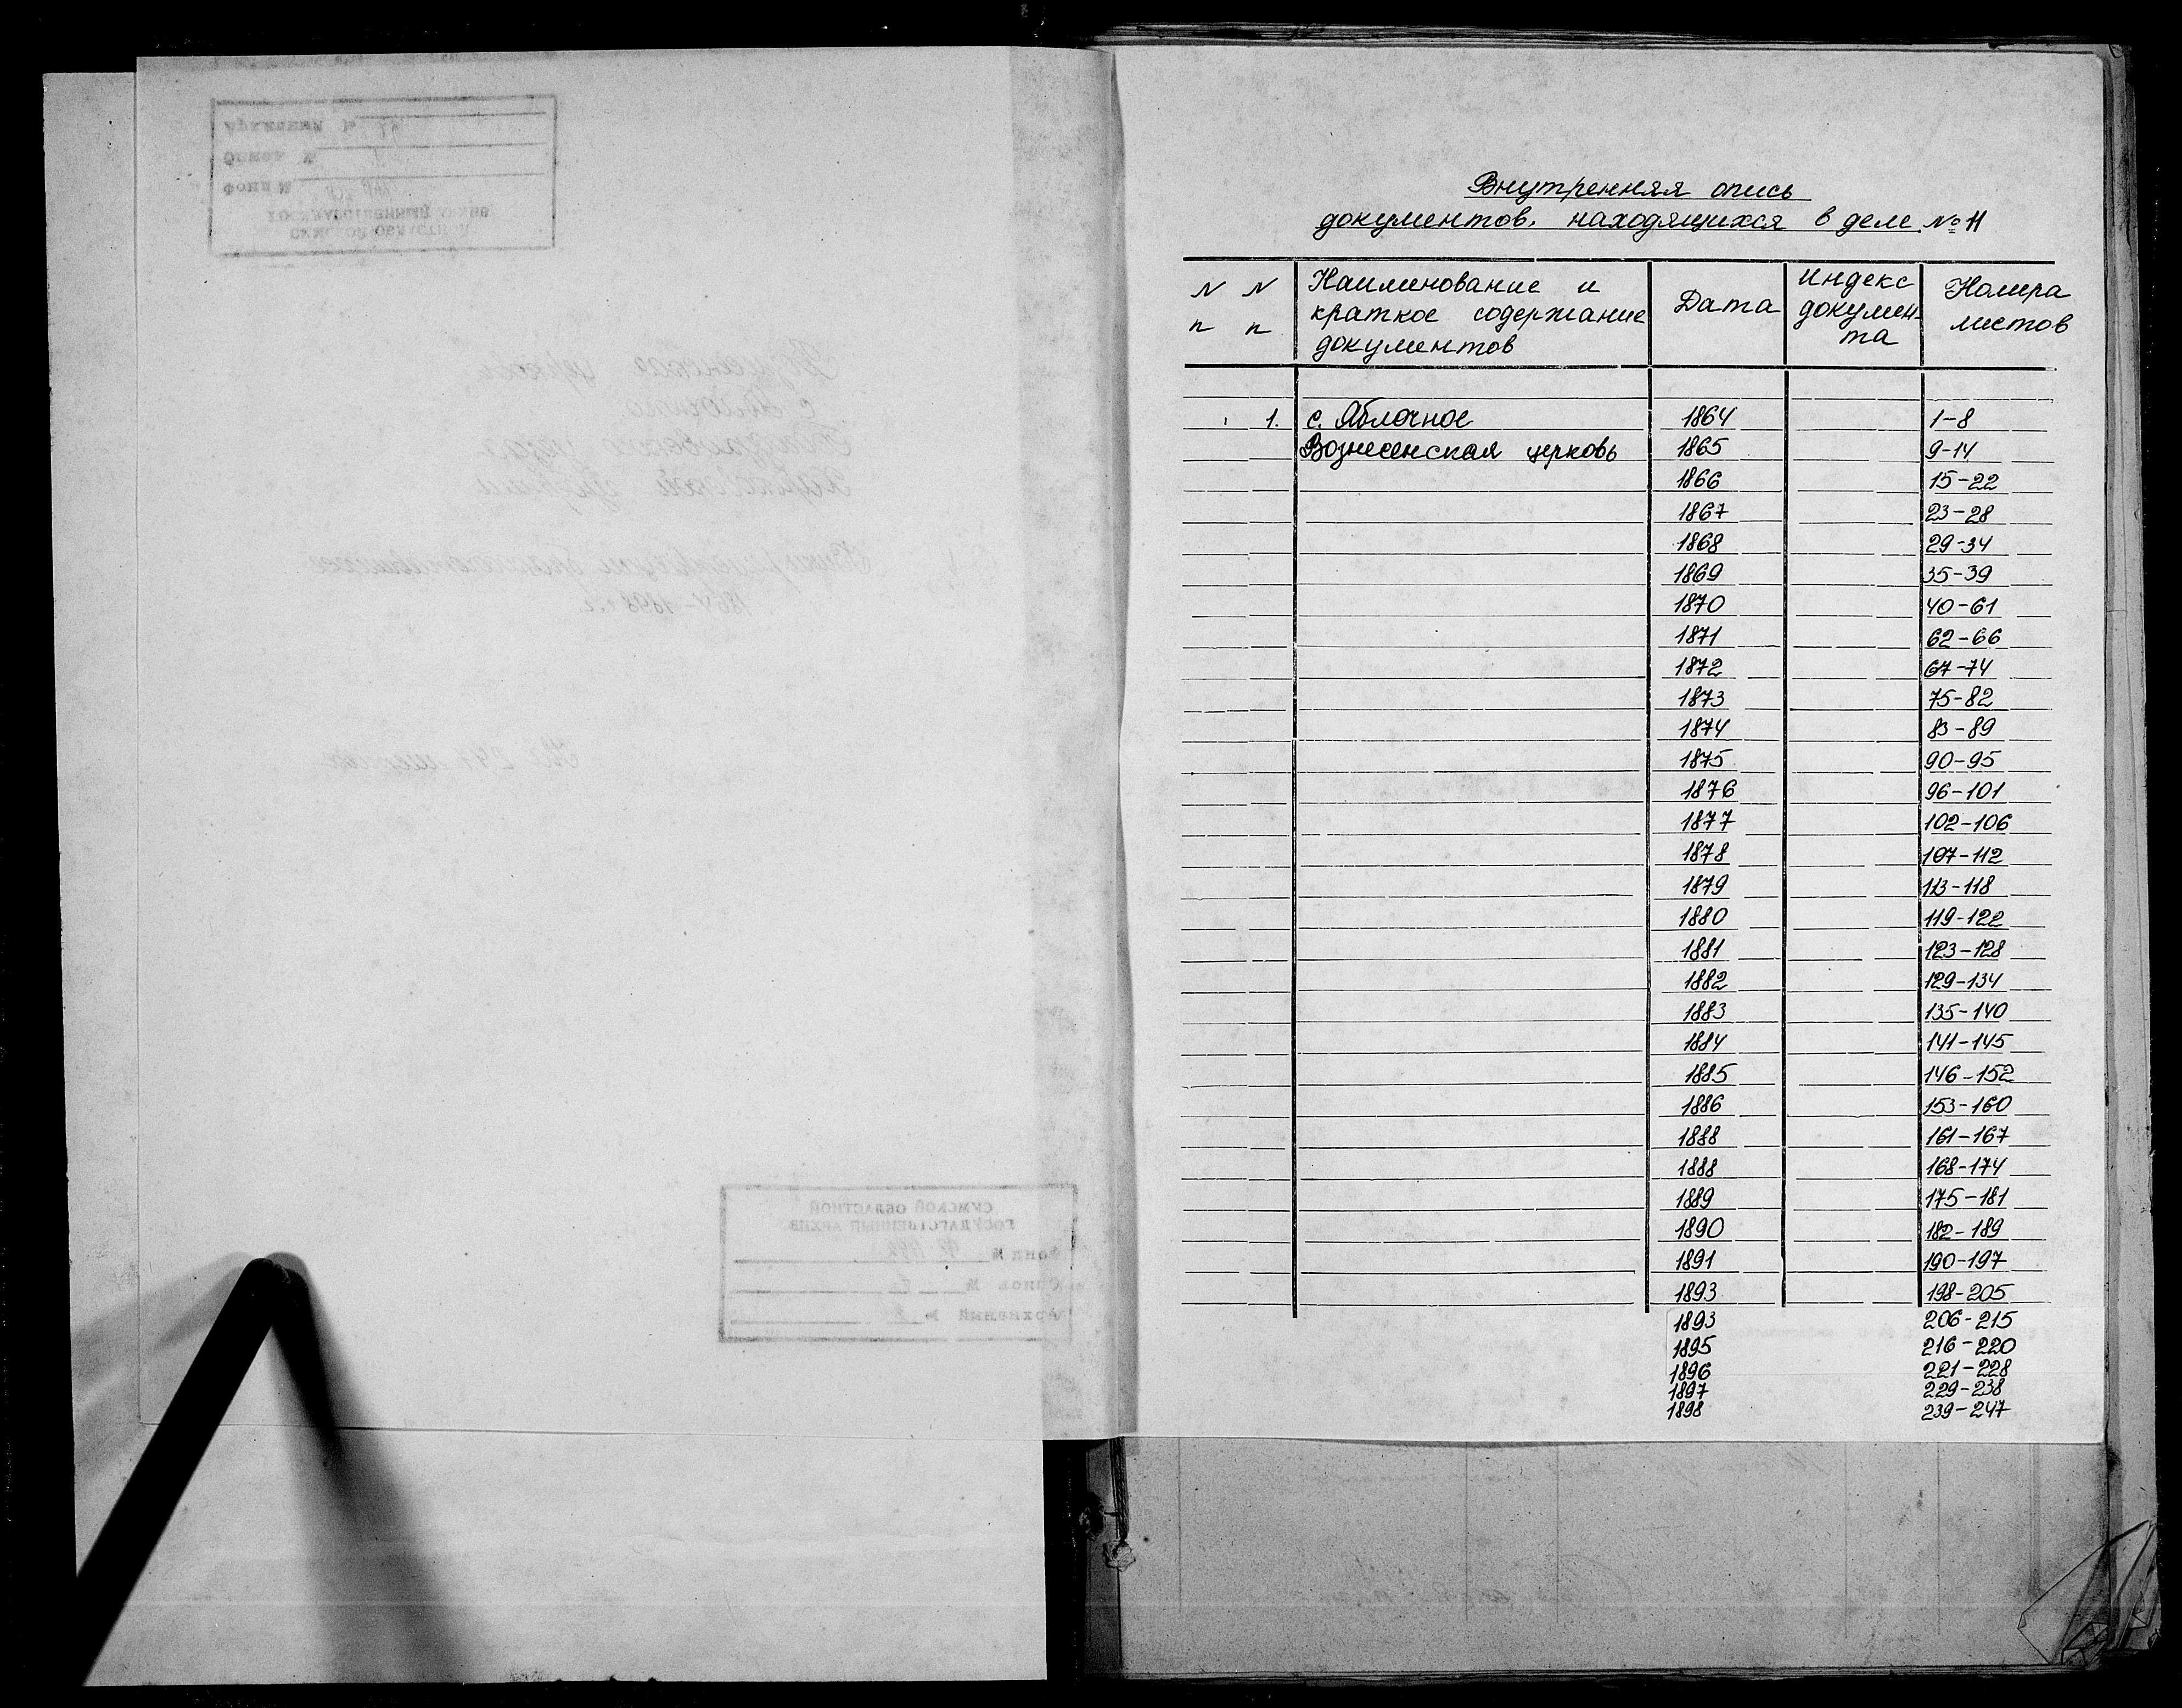 Внутренняя опись
документов, находящихся в деле № 11
N N Наименование и Дата Индекс Номера
п п краткое содержание докумен- листов
документов та
1. с. Яблочное 1864 1-8
Вознесенская церковь 1865 9-14
1866 15-22
1867 23-28
1868 29-34
1869 35-39
1870 40-61
1871 62-66
1872 67-74
1873 75-82
1874 83-89
1875 90-95
1876 96-101
1877 102-106
1878 107-112
1879 113-118
1880 119-122
1881 123-128
1882 129-134
1883 135-140
1884 141-145
1885 146-152
1886 153-160
1888 161-167
1888 168-174
1889 175-181
1890 182-189
1891 190-197
1893 198-205
1893 206-215
1895 216-220
1896 221-228
1897 229-238
1898 239-247
СУМСКОЙ ОБЛАСТНОЙ
ГОСУДАРСТВЕННЫЙ АРХИВ
Фонд №
Опись №
Архивный №